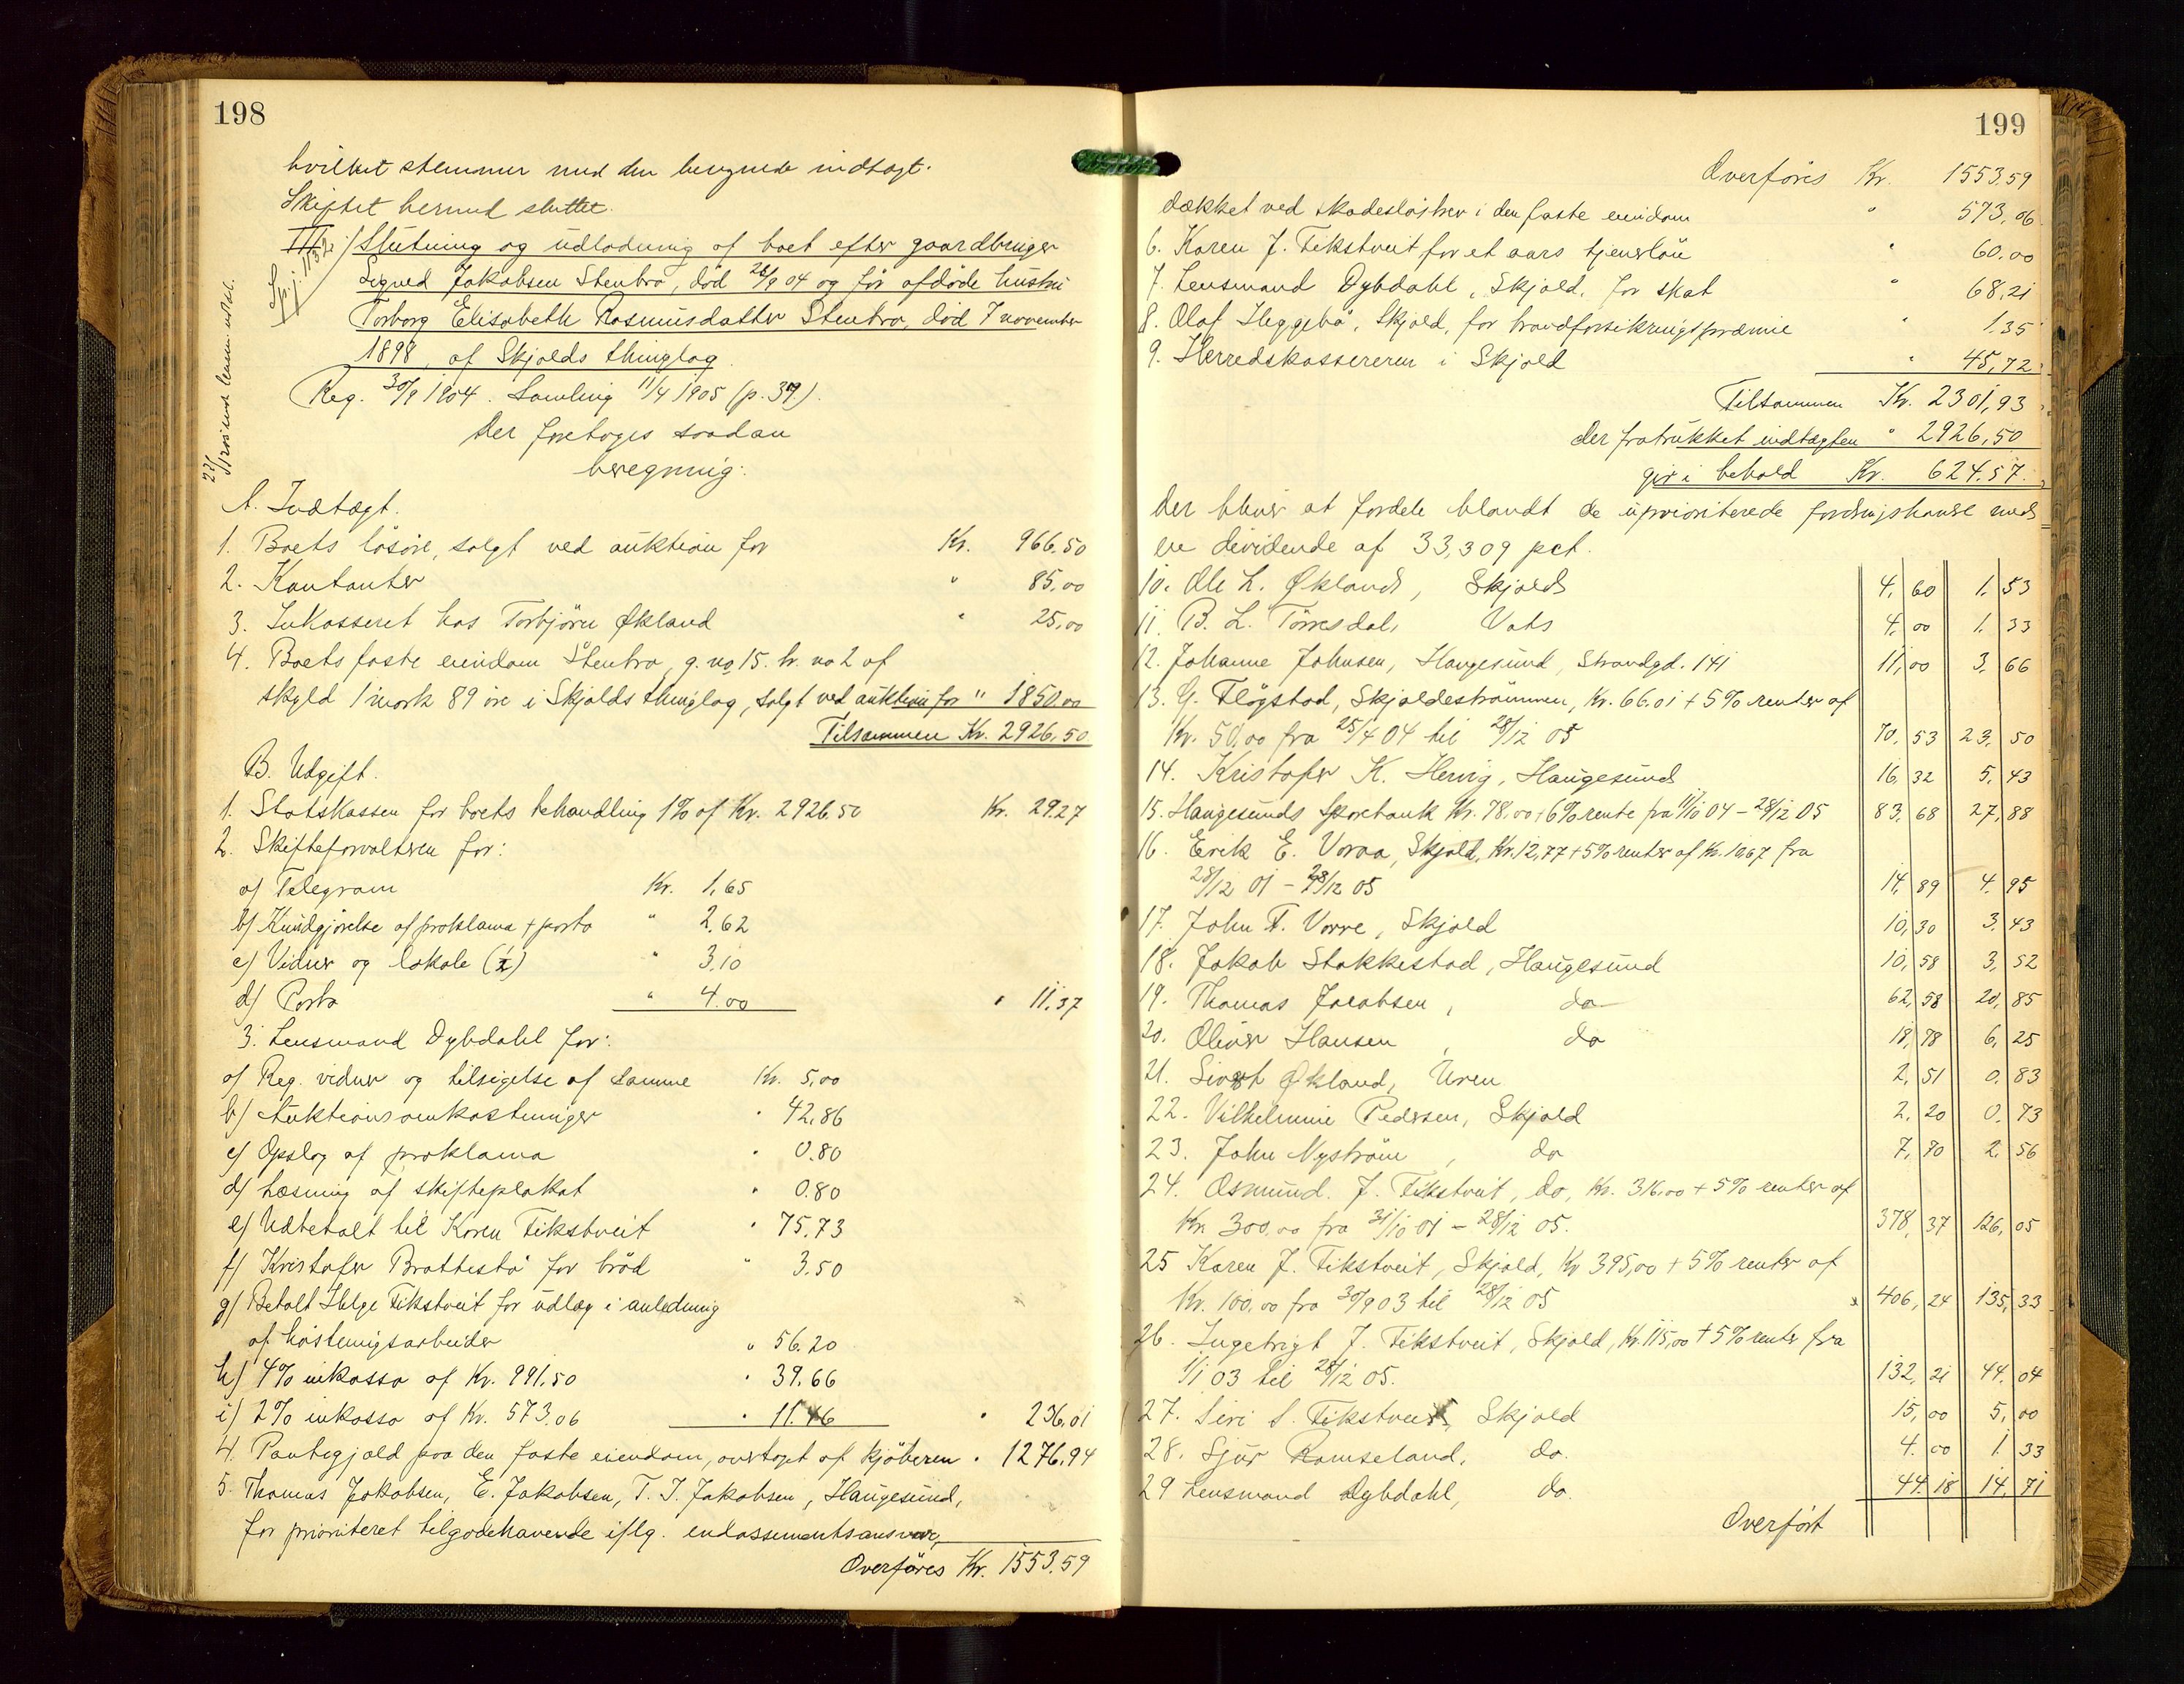 198
hvilket stemmer med den beregnede indtægt.
Skiftet hermed sluttet.
III/ Slutning og udlodning af boet efter gaardbruger
Sigved Jakobsen Stenbrø, død 28/9 04 og før afdøde hustru
Torborg Elisabeth Rasmusdatter Stenbrø, død 7 november
1898, af Skjolds thinglag.
Reg. 30/9 1904. Samling 11/4 1905 (p. 39).
Der foretoges saadan
beregning:
A. Indtægt.
1. Boets løsøre, solgt ved auktion for Kr. 966.50
2. Kontanter " 85.00
3. Inkasseret hos Torbjørn Økland " 25.00
4. Boets faste eiendom Stenbrø, g. no 15. br. no 2 af
skyld 1 mark 89 øre i Skjolds thinglag, solgt ved auktion for " 1850.00
Tilsammen Kr. 2926.50
B. Udgift.
1. Statskassen for boets behandling 1% af Kr. 2926.50 Kr. 29.27
2. Skifteforvalteren for:
a) Telegram Kr. 1.65
b) Kundgjørelse af proklama + porto " 2.62
c) Vidner og lokale (½) " 3.10
d) Porto " 4.00 " 11.37
3. Lensmand Dybdahl for:
a) Reg. vidner og tilsigelse af samme Kr. 5.00
b) Auktionsomkostninger " 42.86
c) Opslag af proklama " 0.80
d) Læsning af skifteplakat " 0.80
e) Udbetalt til Karen Fikstveit " 75.73
f) Kristofer Brattestø for brød " 3.50
g) Betalt Helge Fikstveit for udlæg i anledning
af høstningsarbeider " 56.20
h) 4% inkasso af Kr. 991.50 " 39.66
i) 2% inkasso af Kr. 573.06 " 11.46 " 236.01
4. Pantegjæld paa den faste eiendom, overtaget af kjøberen " 1276.94
5. Thomas Jakobsen, E. Jakobsen, T. J. Jakobsen, Haugesund,
for prioriteret tilgodehavende iflg. endossementsansvar,
Overføres Kr. 1553.59
199
Overføres Kr. 1553.59
dækket ved skadesløsbrev i den faste eiendom " 573.06
6. Karen J. Fikstveit for et aars tjenerløn " 60.00
7. Lensmand Dybdahl, Skjold, for skat " 68.21
8. Olaf Heggebø, Skjold, for brandforsikringspræmie " 1.35
9. Herredskassereren i Skjold " 45,72
Tilsammen Kr. 2301,93
der fratrukket indtægten " 2926,50
gir i behold Kr. 624.57.
der bliver at fordele blandt de uprioriterede fordringshavere med
en dividende af 33,309 pct.
10. Ole L. Økland, Skjold 4,60 1.53
11. B. L. Tørresdal, Vats 4.00 1.33
12. Johanne Johnsen, Haugesund, Strandgd. 141 11,00 3.66
13. G. Fløgstad, Skjoldestrømmen, Kr. 66.01 + 5% renter af
Kr. 50.00 fra 25/4 04 til 28/12 05 70.53 23.50
14. Kristofer K. Hervig, Haugesund 16.32 5.43
15. Haugesunds Sparebank Kr. 78.00 + 6% rente fra 11/10 04 – 28/12 05 83.68 27.88
16. Erik E. Voraa, Skjold, Kr. 12,77 + 5% renter af Kr. 10.67 fra
28/12 01 – 28/12 05 14.89 4.95
17. John T. Vorre, Skjold 10,30 3.43
18. Jakob Stakkestad, Haugesund 10,58 3,52
19. Thomas Jacobsen, do 62,58 20,85
20. Oliver Hansen, do 18,78 6,25
21. Sivert Økland, Uren 2,51 0.83
22. Vilhelmine Pedersen, Skjold 2.20 0.73
23. John Nystrøm, do 7,70 2.56
24. Osmund. J. Fikstveit, do, Kr. 316.00 + 5% renter af
Kr. 300.00 fra 31/10 01 – 28/12 05. 378,37 126,05
25 Karen J. Fikstveit, Skjold, Kr 395,00 + 5% renter af
Kr. 100.00 fra 30/9 03 til 28/12 05 406,24 135,33
26. Ingebrigt J. Fikstveit, Skjold, Kr. 115,00 + 5% renter fra
1/1 03 til 28/12 05. 132,21 44.04
27. Siri S. Fikstveit, Skjold 15,00 5,00
28. Sjur Ramseland, do. 4.00 1.33
29 Lensmand Dybdahl, do. 44.18 14.71
Overført